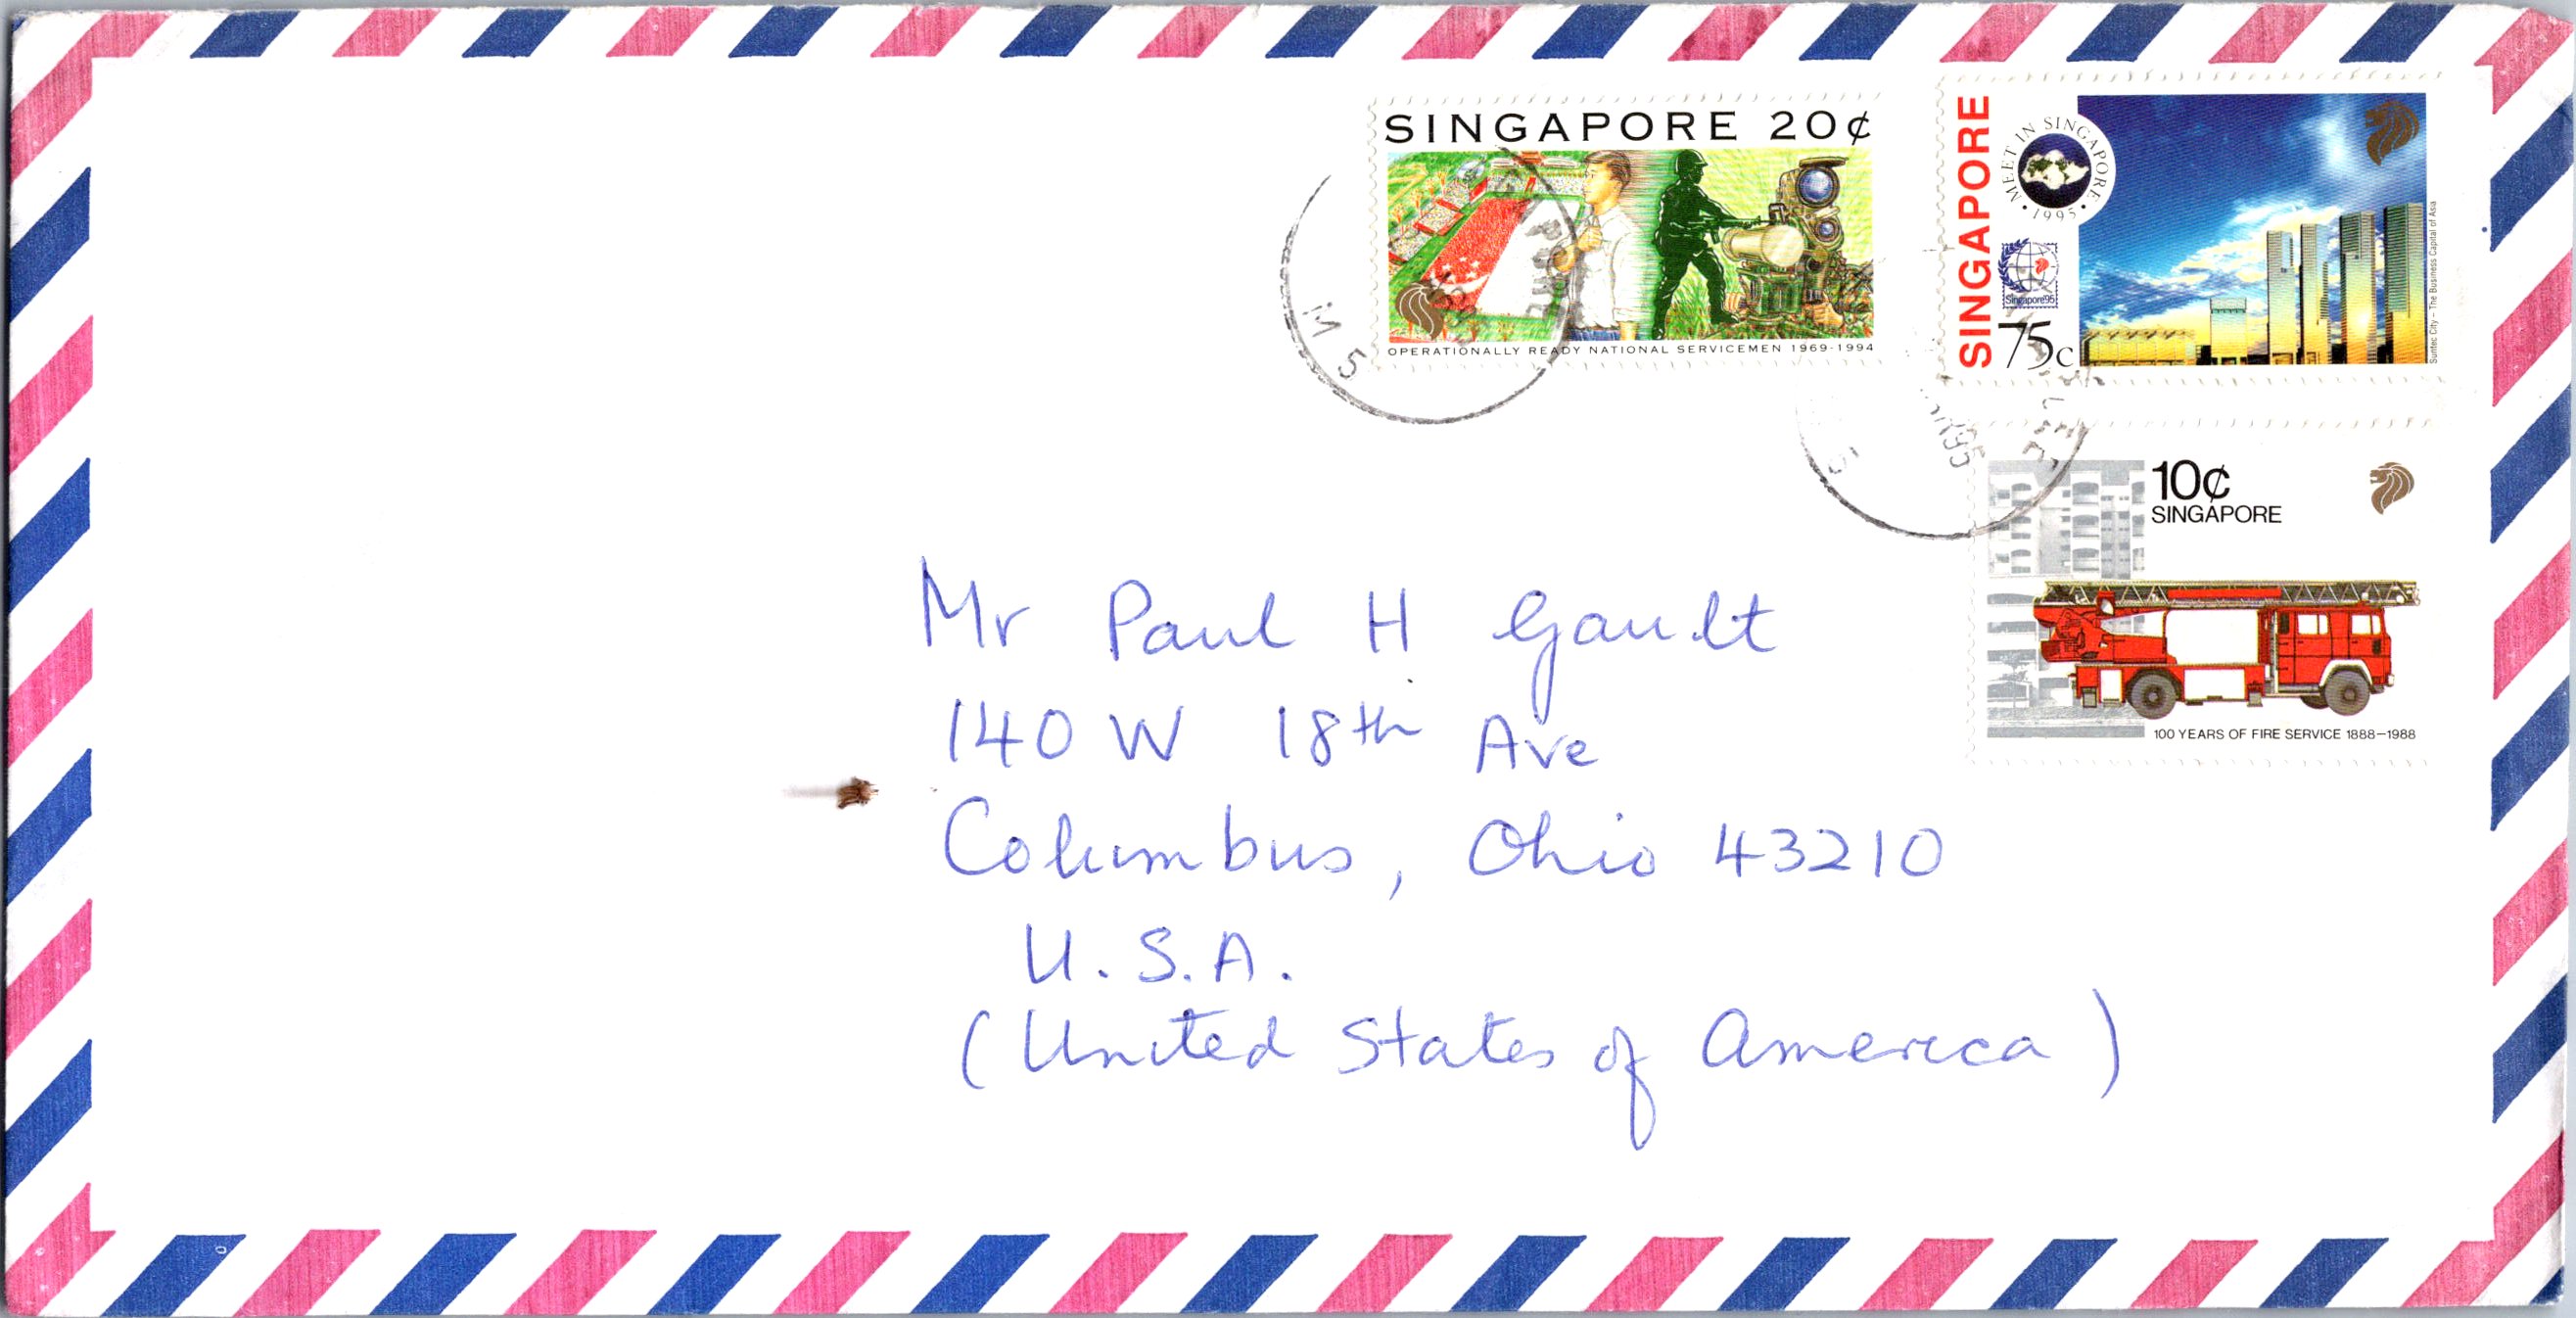 SINGAPORE 20¢
OPERATIONALLY READY NATIONAL SERVICEMEN 1969-1994
SINGAPORE
MEET IN SINGAPORE
• 1995 •
Singapore'95
75c
Suntec City – The Business Capital of Asia
M 5
5
95
10¢
SINGAPORE
100 YEARS OF FIRE SERVICE 1888–1988
Mr Paul H Gault
140 W 18th Ave
Columbus, Ohio 43210
U.S.A.
(United States of America)